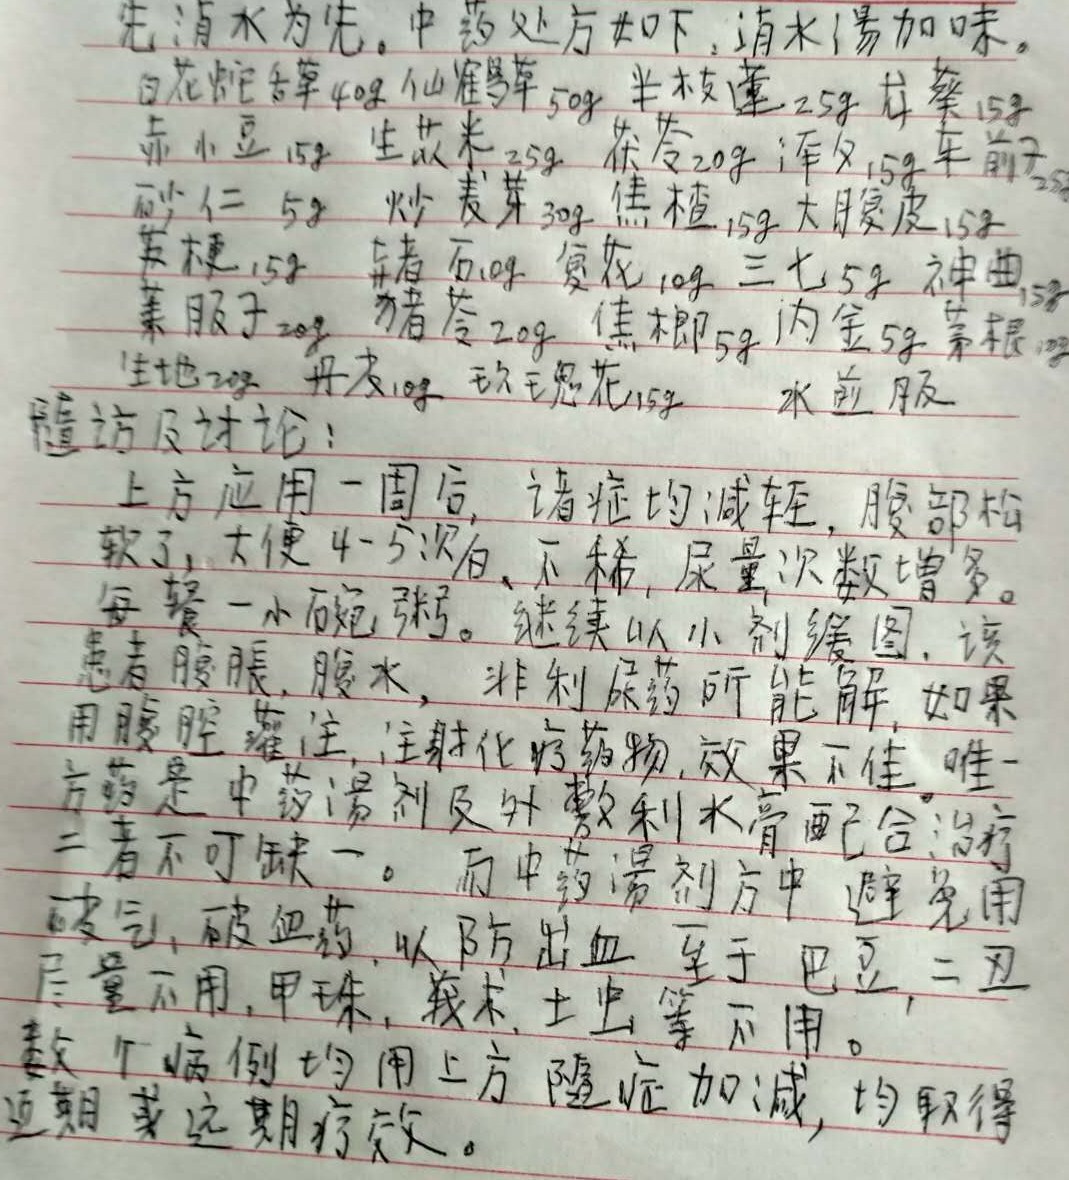 先消水为先。中药处方如下:消水湯加味。
白花蛇舌草40g 仙鶴草50g 半枝蓮25g 龙葵15g
赤小豆15g 生苡米25g 茯苓20g 泽夕15g 车前子25g
砂仁 5g 炒麦芽30g 焦楂15g 大腹皮15g
苏梗15g 赭石10g 复花10g 三七5g 神曲15g
莱服子20g 猪苓20g 焦榔5g 内金5g 茅根
生地20g 丹皮10g 玫瑰花15g 水煎服
隨访及讨论:
上方应用一周后,诸症均减轻,腹部松
软了,大便4-5次/日、不稀,尿量,次数增多。
每餐一小碗粥。继续以小剂缓图.该
患者腹脹,腹水,非利尿药所能解,如果
用腹腔灌注,注射化疗药物,效果不佳。唯一
方药是中药湯剂及外敷利水膏配合治疗
二者不可缺一。而中药湯剂方中避免用
破气、破血药,以防出血 至于巴豆,二丑
尽量不用,甲珠,莪术,土虫等不用。
数个病例均用上方隨症加减,均取得
近期或远期疗效。